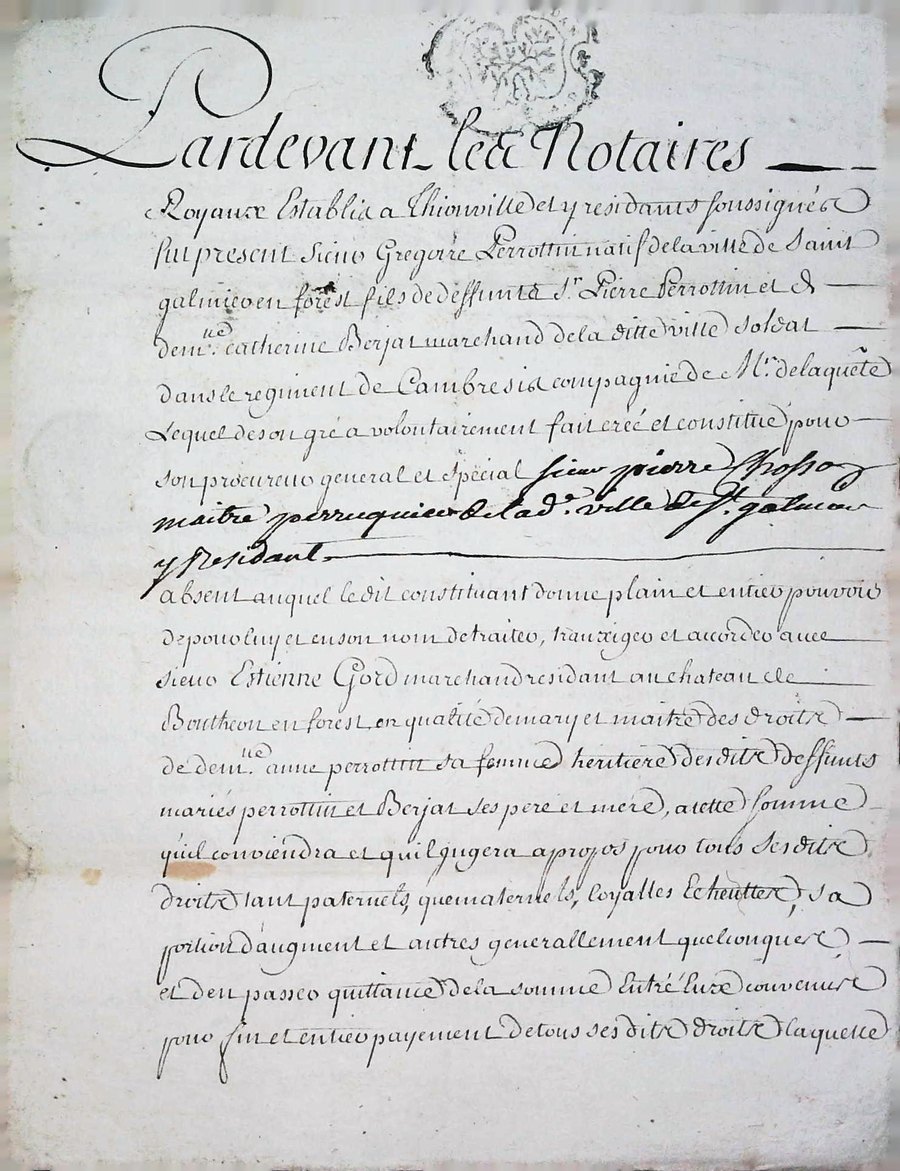 Pardevant les Notaires
Royaux Establis a Thionville et y residants soussignés
fut present Sieur Gregoire Perrottin natif de la ville de Saint
galmier en forest fils de deffunts Sr. Pierre Perrottin et de
demlle. catherine Berjat marchand de la ditte ville soldat
dans le regiment de Cambresis compagnie de Mr. delaquête
Lequel de son gré a volontairement fait creé et constitué pour
son procureur general et special sieur pierre
maitre perruquier de lade. ville de St. galmier
y Residant
absent auquel le dit constituant donne plain et entier pouvoir
de pour luy et en son nom de traiter, tranziger et accorder avec
sieur Estienne Gord marchand residant au chateau de
Boutheon en forest en qualité de mary et maitre des droits
de demlle. anne perrottin sa femme heritiere desdits deffunts
mariés perrottin et Berjat ses pere et mere, a telle somme
quil conviendra et quil jugera apropos pour tous sesdits
droits tant paternels, que maternels, loyalles Echeuttes, sa
portion d'augment et autres generallement quelconques
et d'en passer quittance de la somme Entré Euxe convenüe
pour fin et entier payement de tous sesdits droits laquelle